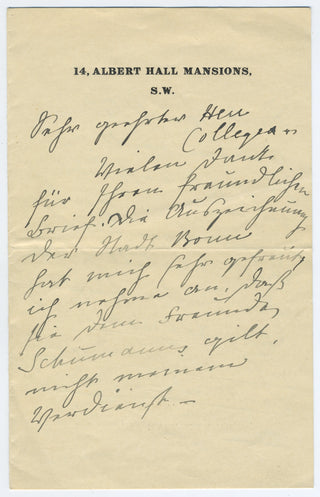 14, ALBERT HALL MANSIONS,
S.W.
Sehr geehrter Herr
College.
Vielen Dank
für Ihren freundlichen
Brief. Die Auszeichnung
der Stadt Bonn
hat mich sehr gefreut,
ich nehme an, daß
sie dem Freunde
Schumanns gilt,
nicht meinem
Verdienst –